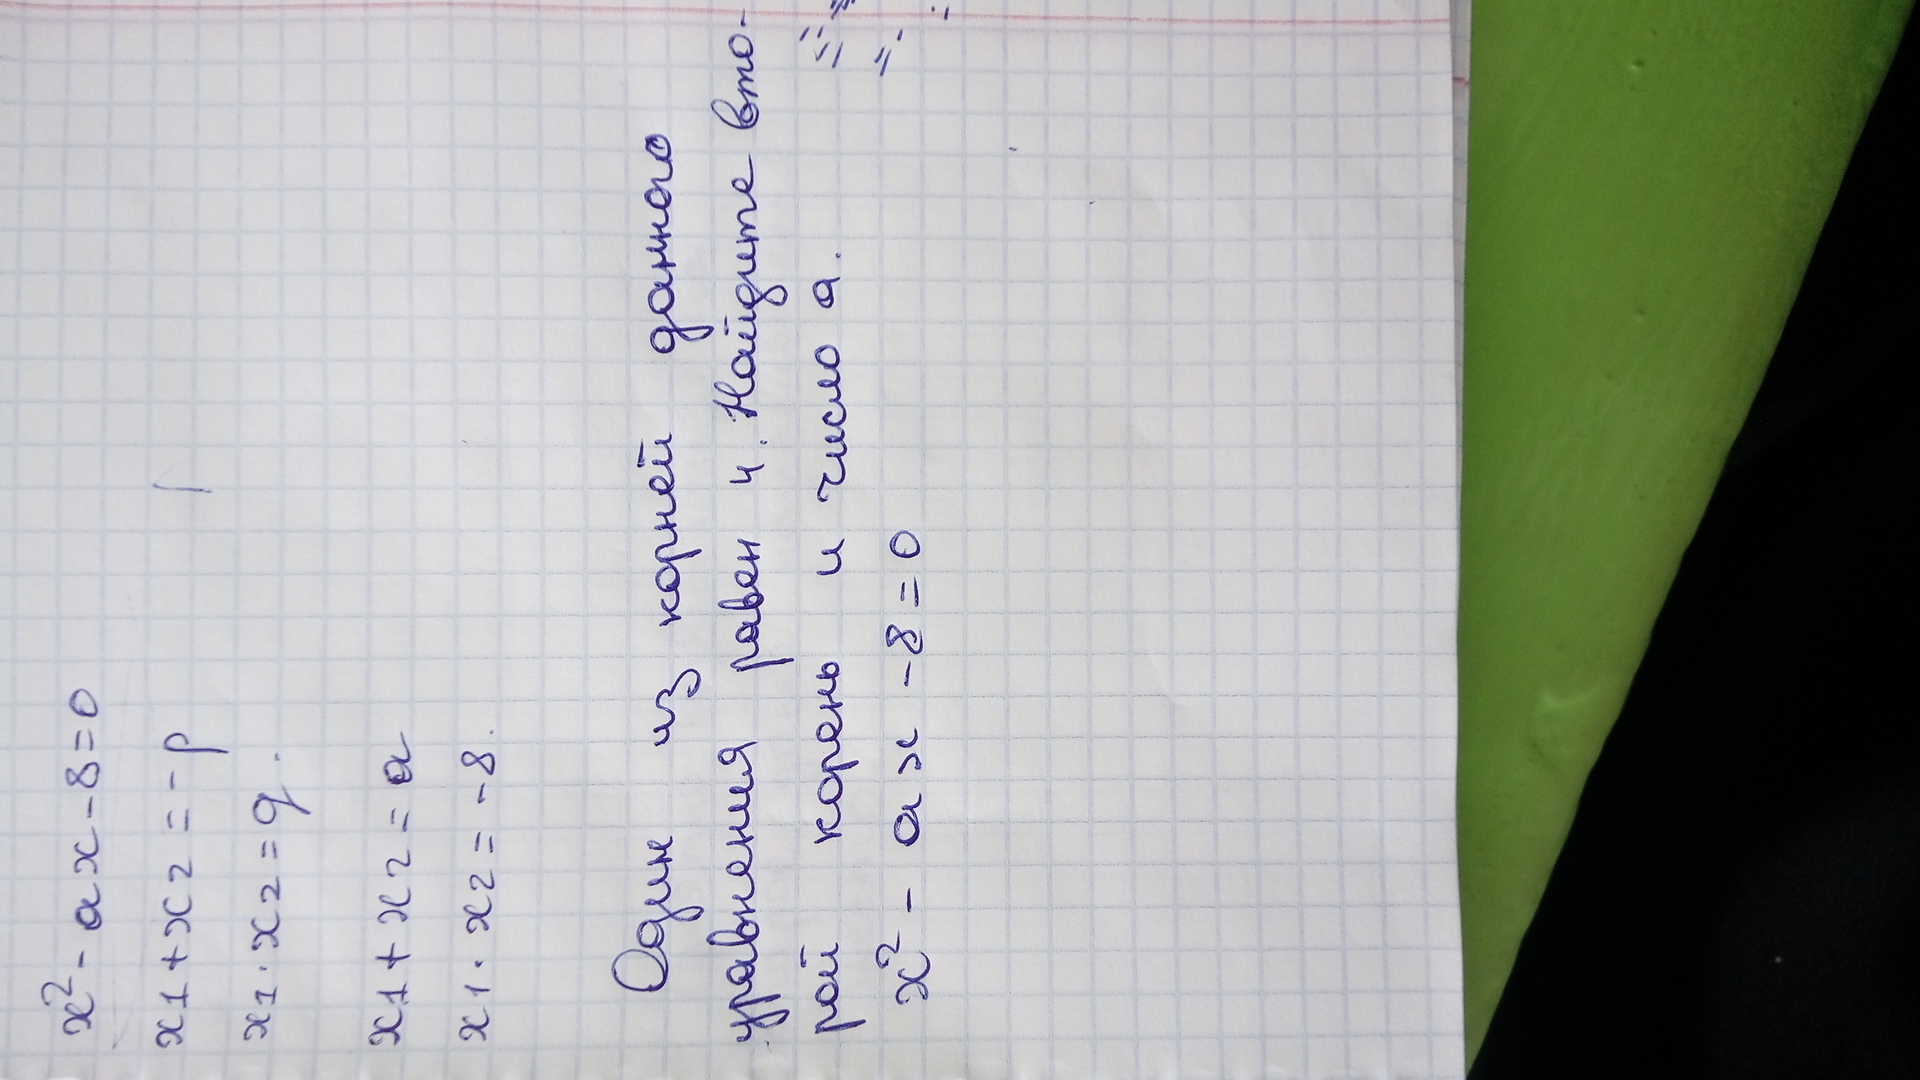 x² - ax - 8 = 0
x1 + x2 = - p
x1 · x2 = q.
x1 + x2 = a
x1 · x2 = -8.
Один из корней данного
уравнения равен 4. Найдите вто-
рой корень и число a.
x² - ax - 8 = 0